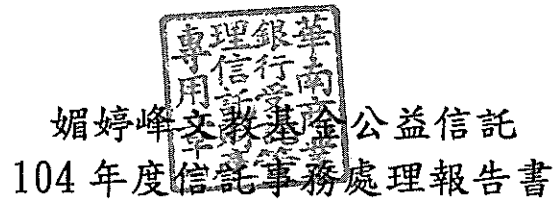 華南商業
銀行受託
理信託財
專用章
媚婷峰文教基金公益信託
104年度信託事務處理報告書